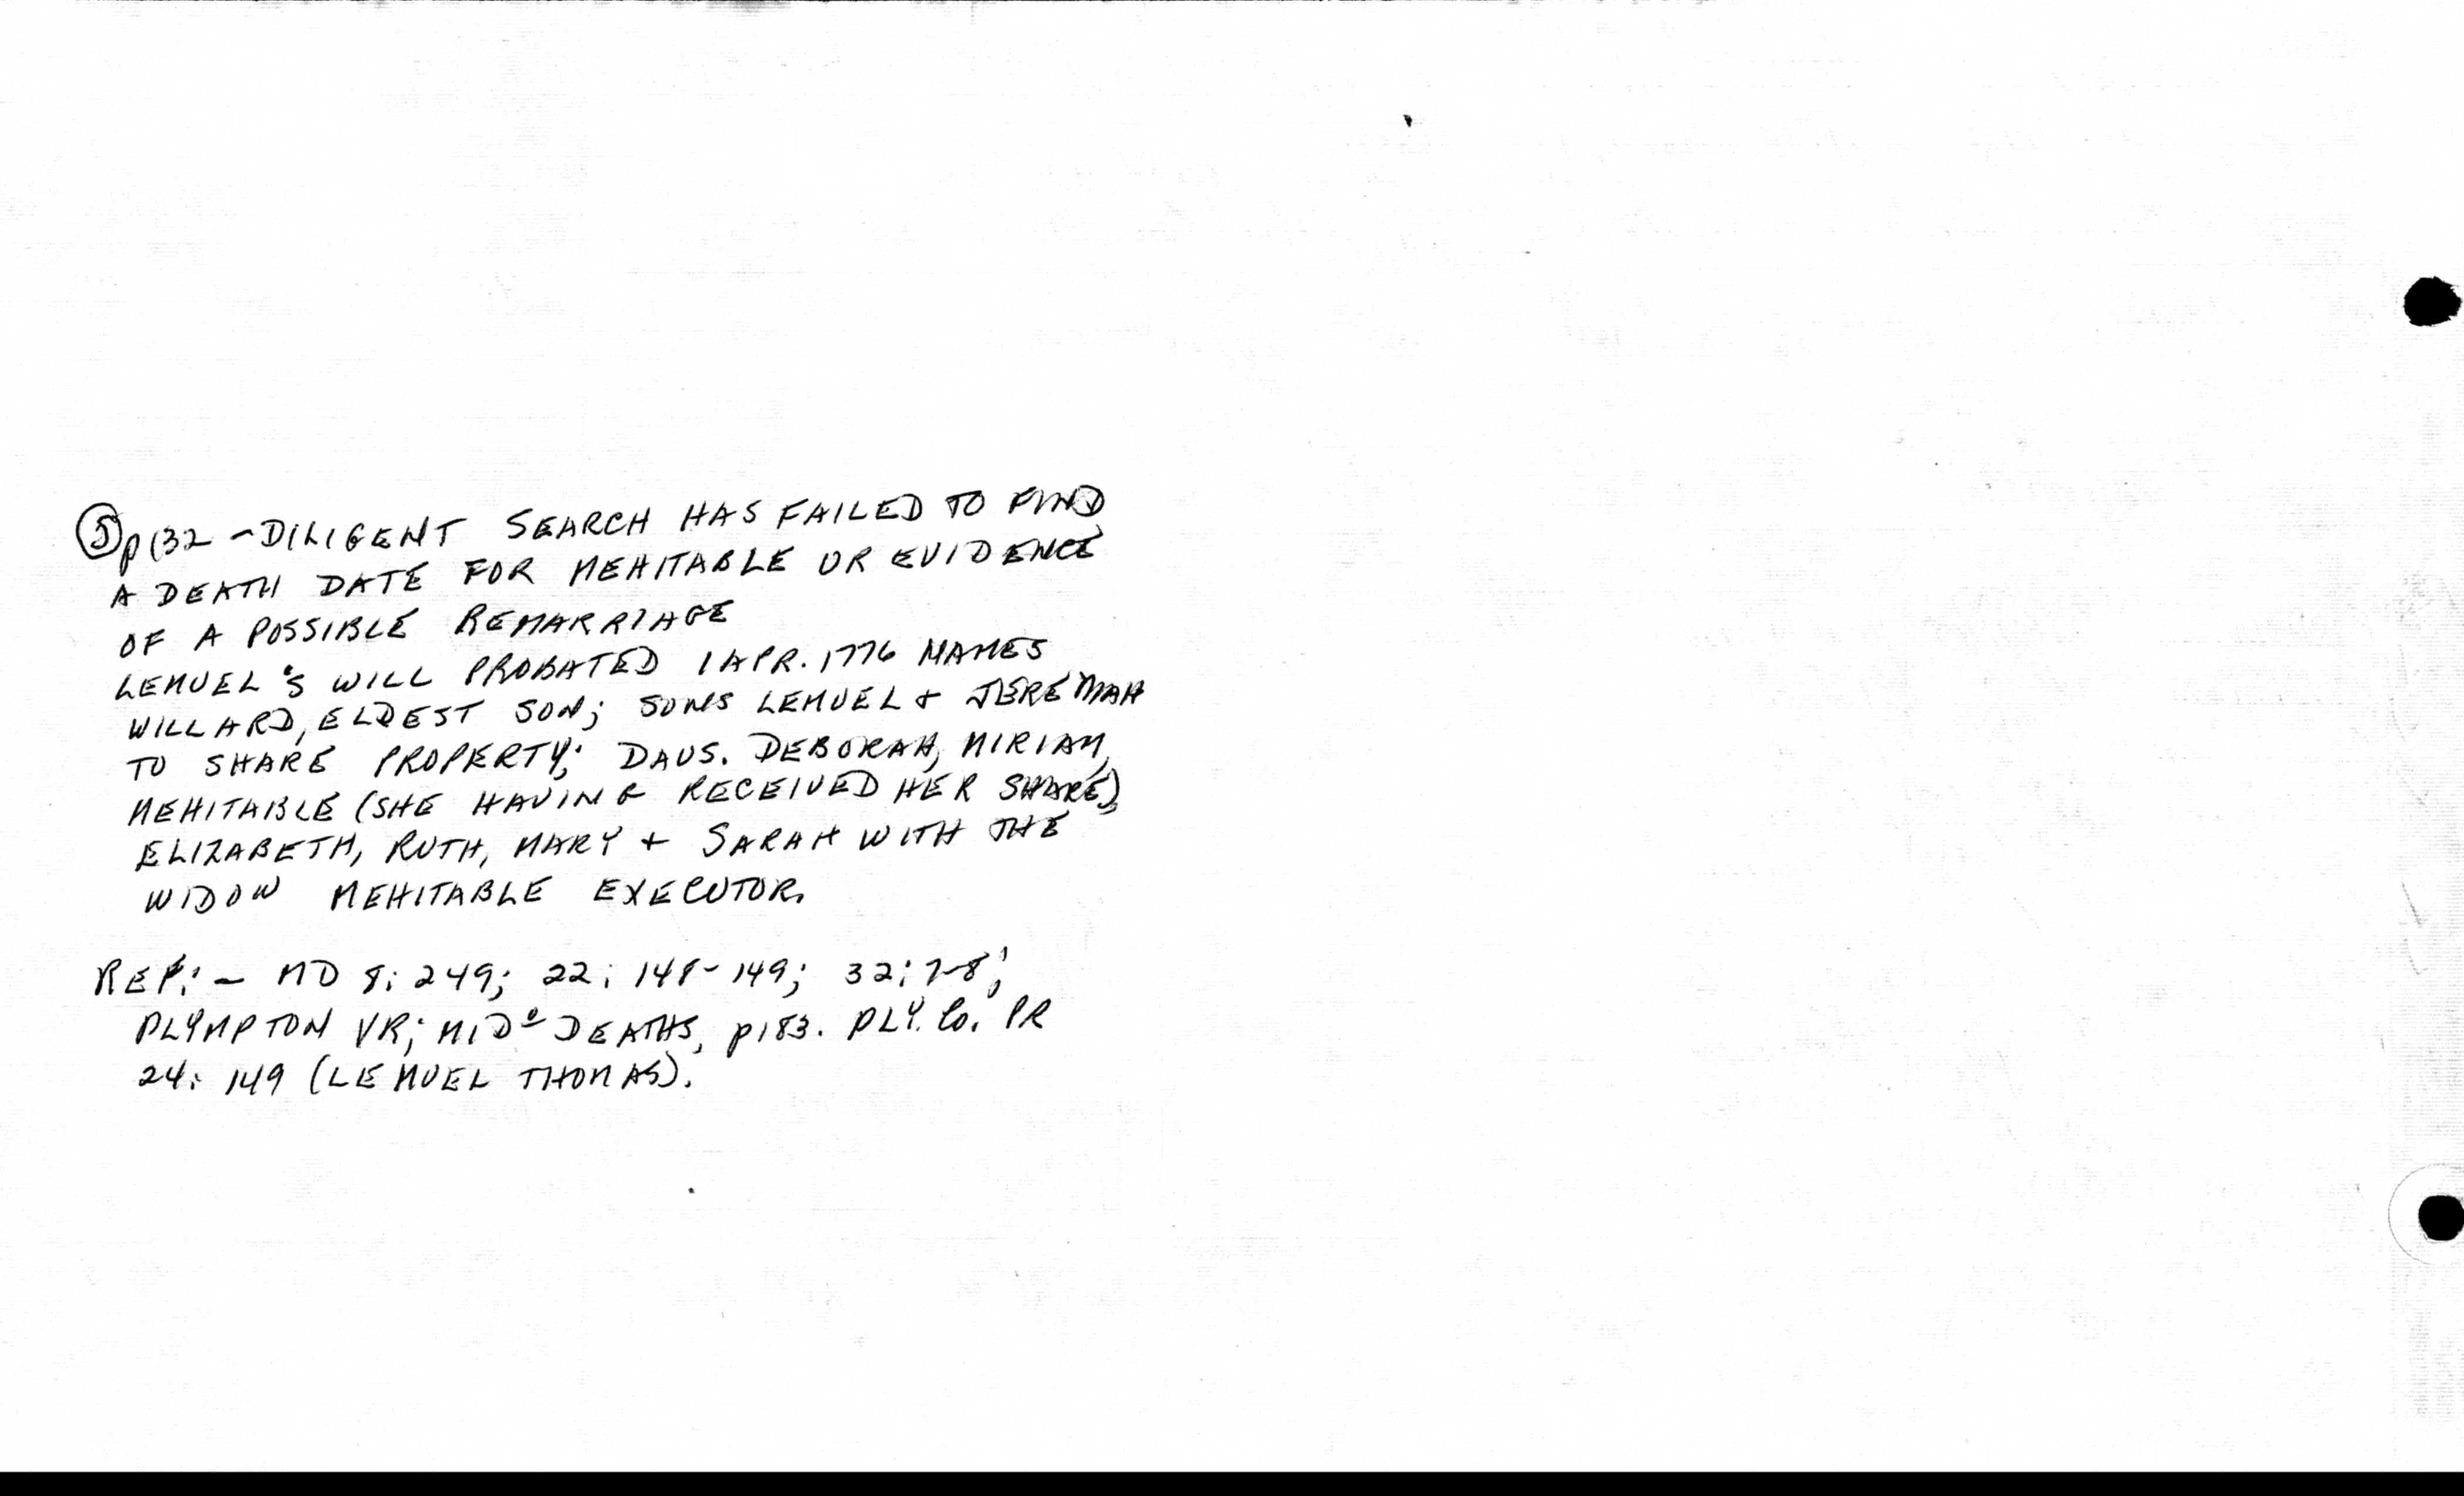 ⑤ p132 - DILIGENT SEARCH HAS FAILED TO FIND
A DEATH DATE FOR MEHITABLE OR EVIDENCE
OF A POSSIBLE REMARRIAGE
LEMUEL'S WILL PROBATED 1 APR. 1776 NAMES
WILLARD, ELDEST SON; SONS LEMUEL + JEREMIAH
TO SHARE PROPERTY; DAUS. DEBORAH, MIRIAM,
MEHITABLE (SHE HAVING RECEIVED HER SHARE),
ELIZABETH, RUTH, MARY + SARAH WITH THE
WIDOW MEHITABLE EXECUTOR.
REF: - MD 8: 249; 22: 148-149; 32: 7-8;
PLYMPTON VR; MIDº DEATHS, p183. PLY. Co. PR
24: 149 (LEMUEL THOMAS).